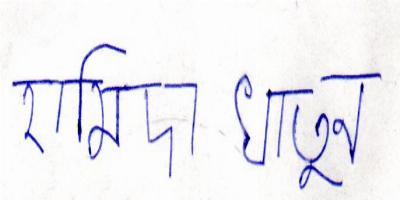 হামিদা খাতুন